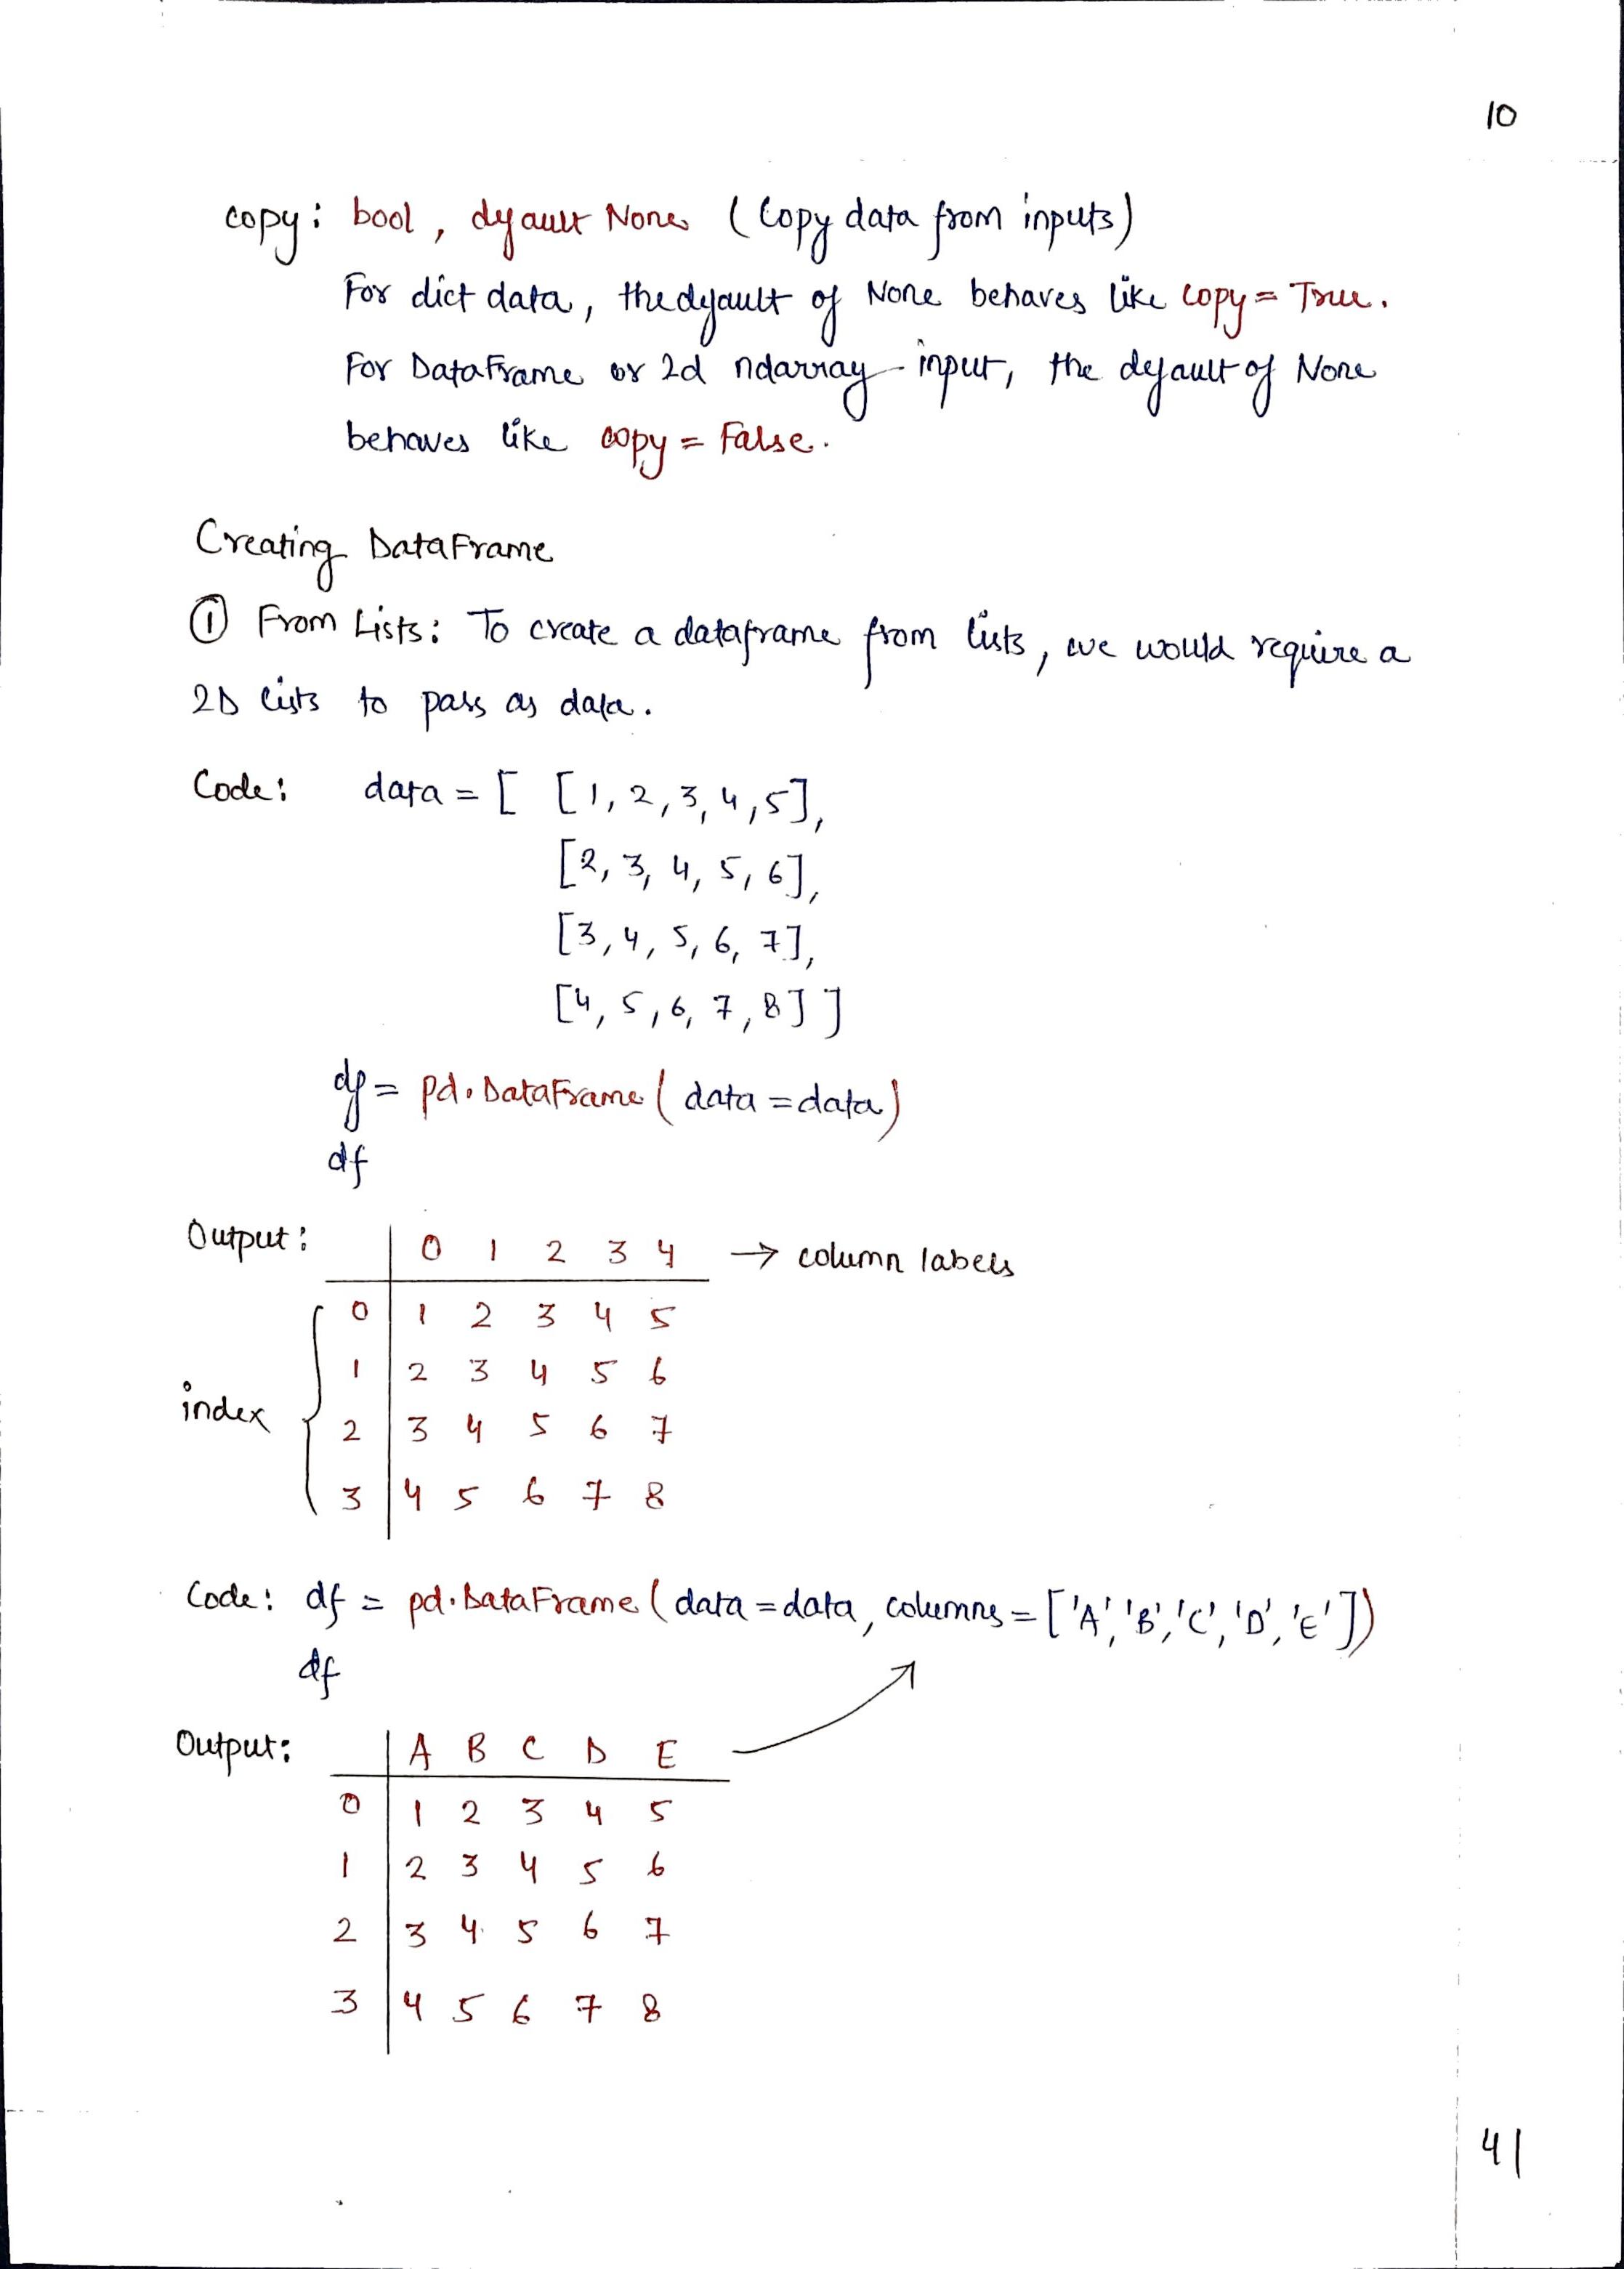 10
copy: bool, default None (Copy data from inputs)
For dict data, the default of None behaves like copy = True.
For DataFrame or 2d ndarray input, the default of None
behaves like copy = False.
Creating DataFrame
① From Lists: To create a dataframe from lists, we would require a
2D lists to pass as data.
Code: data = [ [1, 2, 3, 4, 5],
[2, 3, 4, 5, 6],
[3, 4, 5, 6, 7],
[4, 5, 6, 7, 8] ]
df = pd.DataFrame( data = data)
df
Output: 0 1 2 3 4 → column labels
0 1 2 3 4 5
1 2 3 4 5 6
index
2 3 4 5 6 7
3 4 5 6 7 8
Code: df = pd.DataFrame( data = data, columns = ['A', 'B', 'C', 'D', 'E'])
df
Output: A B C D E
0 1 2 3 4 5
1 2 3 4 5 6
2 3 4 5 6 7
3 4 5 6 7 8
41